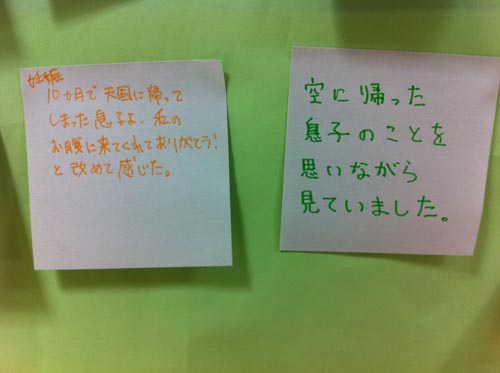 妊娠
10ヵ月で天国に帰って
しまった息子よ、私の
お腹に来てくれてありがとう!
と改めて感じた。
空に帰った
息子のことを
思いながら
見ていました。